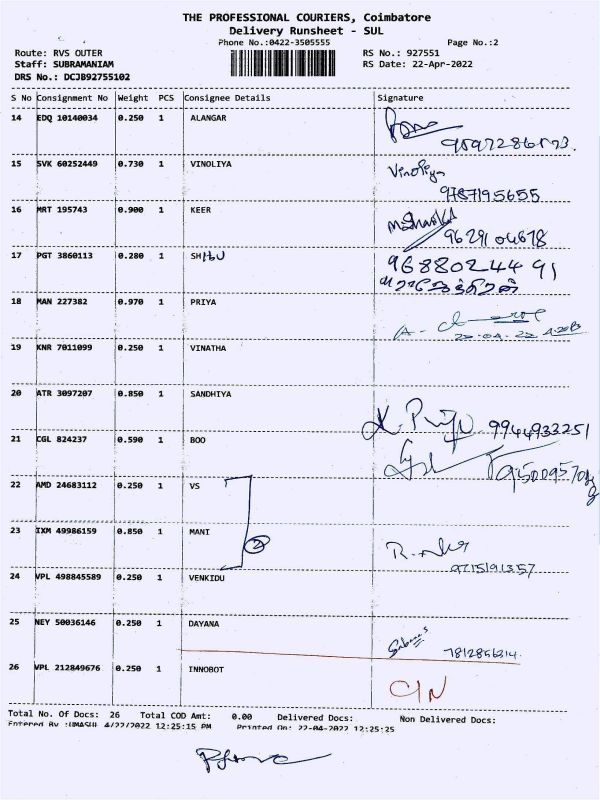 THE PROFESSIONAL COURIERS, Coimbatore
Delivery Runsheet - SUL
Phone No.:0422-3505555 Page No.:2
Route: RVS OUTER RS No.: 927551
Staff: SUBRAMANIAM RS Date: 22-Apr-2022
DRS No.: DCJB92755102
S No Consignment No Weight PCS Consignee Details Signature
14 EDQ 10140034 0.250 1 ALANGAR
15 SVK 60252449 0.730 1 VINOLIYA Vinoliya
9787195655
16 MRT 195743 0.900 1 KEER
9629104678
17 PGT 3860113 0.280 1 SHIBU 9688024491
18 MAN 227382 0.970 1 PRIYA
22.04.22
19 KNR 7011099 0.250 1 VINATHA
20 ATR 3097207 0.850 1 SANDHIYA
K. Priya 9944933251
21 CGL 824237 0.590 1 BOO
22 AMD 24683112 0.250 1 VS
23 IXM 49986159 0.850 1 MANI 2
9715191357
24 VPL 498845589 0.250 1 VENKIDU
25 NEY 50036146 0.250 1 DAYANA
26 VPL 212849676 0.250 1 INNOBOT C/N
Total No. Of Docs: 26 Total COD Amt: 0.00 Delivered Docs: Non Delivered Docs:
Entered By :UMASUL 4/22/2022 12:25:15 PM Printed On: 22-04-2022 12:25:25